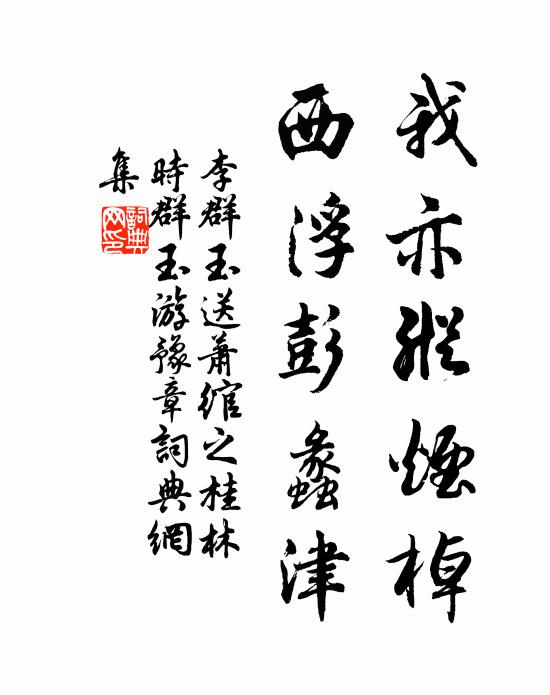 我亦縱煙棹
西浮彭蠡津
李群玉送蕭綰之桂林
時群玉游豫章詞典網
集
詞典網印